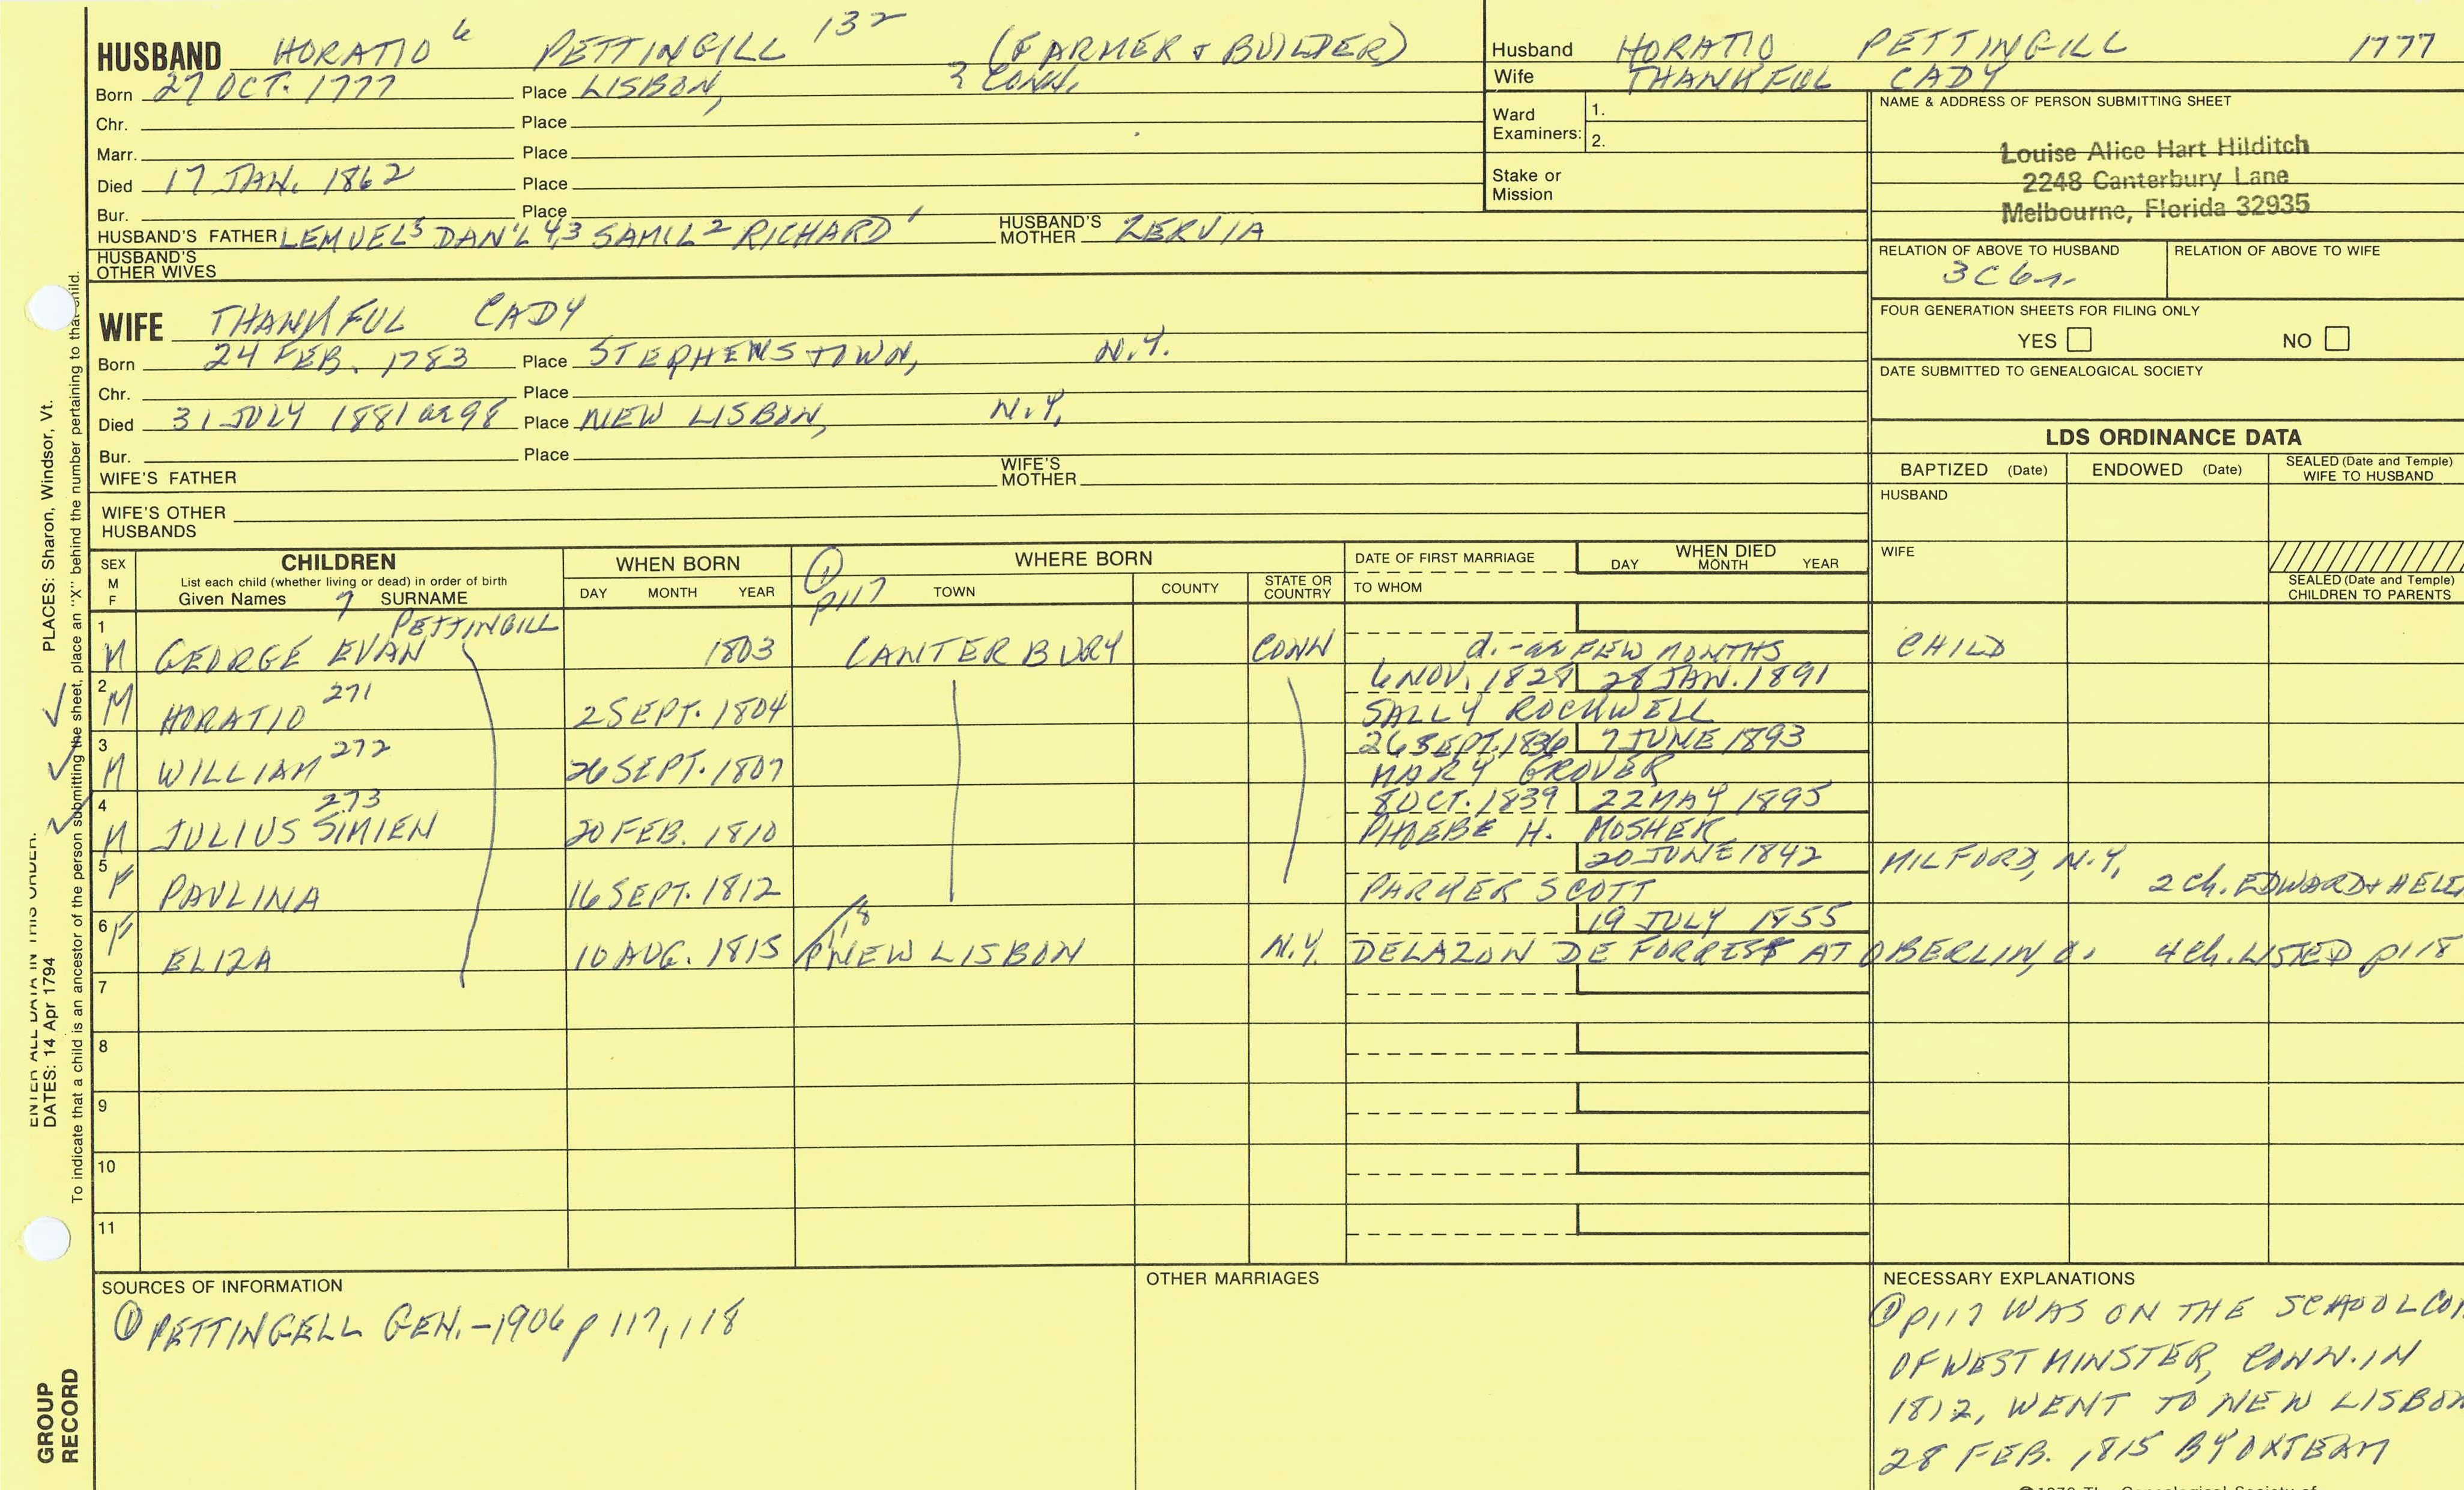 HUSBAND HORATIO 6 PETTINGILL 132 (FARMER & BUILDER)
Born 27 OCT. 1777 Place LISBON, CONN.
Chr. Place
Marr. Place
Died 17 JAN. 1862 Place
Bur. Place
HUSBAND'S FATHER LEMUEL5 DAN'L 4,3 SAM'L2 RICHARD1 HUSBAND'S MOTHER ZERVIA
HUSBAND'S OTHER WIVES
WIFE THANKFUL CADY
Born 24 FEB. 1783 Place STEPHENSTOWN, N.Y.
Chr. Place
Died 31 JULY 1881 ae 98 Place NEW LISBON, N.Y.
Bur. Place
WIFE'S FATHER WIFE'S MOTHER
WIFE'S OTHER HUSBANDS
Husband HORATIO PETTINGILL 1777
Wife THANKFUL CADY
Ward Examiners: 1.
2.
Stake or Mission
NAME & ADDRESS OF PERSON SUBMITTING SHEET
Louise Alice Hart Hilditch
2248 Canterbury Lane
Melbourne, Florida 32935
RELATION OF ABOVE TO HUSBAND RELATION OF ABOVE TO WIFE
3C6r.
FOUR GENERATION SHEETS FOR FILING ONLY
YES NO
DATE SUBMITTED TO GENEALOGICAL SOCIETY
LDS ORDINANCE DATA
BAPTIZED (Date) ENDOWED (Date) SEALED (Date and Temple) WIFE TO HUSBAND
HUSBAND
WIFE
SEALED (Date and Temple) CHILDREN TO PARENTS
SEX M F CHILDREN WHEN BORN WHERE BORN DATE OF FIRST MARRIAGE WHEN DIED
List each child (whether living or dead) in order of birth DAY MONTH YEAR
Given Names 7 SURNAME DAY MONTH YEAR ① p117 TOWN COUNTY STATE OR COUNTRY TO WHOM
1 PETTINGILL
M GEORGE EVAN 1803 CANTERBURY CONN d.-ae FEW MONTHS CHILD
2 6 NOV. 1828 28 JAN. 1891
M HORATIO 271 2 SEPT. 1804 SALLY ROCKWELL
3 26 SEPT. 1836 7 JUNE 1893
M WILLIAM 272 26 SEPT. 1807 MARY GROVER
4 8 OCT. 1839 22 MAY 1895
M JULIUS SIMIEN 273 20 FEB. 1810 PHOEBE H. MOSHER
5 20 JUNE 1842 MILFORD, N.Y.
F PAULINA 16 SEPT. 1812 PARKER SCOTT 2 Ch. EDWARD & HELE
6 19 JULY 1855
F ELIZA 10 AUG. 1815 p118 NEW LISBON N.Y. DELAZON DE FORREST AT OBERLIN, O. 4 Ch. LISTED p118
7
8
9
10
11
SOURCES OF INFORMATION
① PETTINGELL GEN.-1906 p 117, 118
OTHER MARRIAGES
NECESSARY EXPLANATIONS
① p117 WAS ON THE SCHOOL COM
OF WESTMINSTER, CONN. IN
1812, WENT TO NEW LISBON
28 FEB. 1815 BY OXTEAM
ENTER ALL DATA IN THIS ORDER:
PLACES: Sharon, Windsor, Vt.
DATES: 14 Apr 1794
To indicate that a child is an ancestor of the person submitting the sheet, place an "X" behind the number pertaining to that child.
GROUP
RECORD